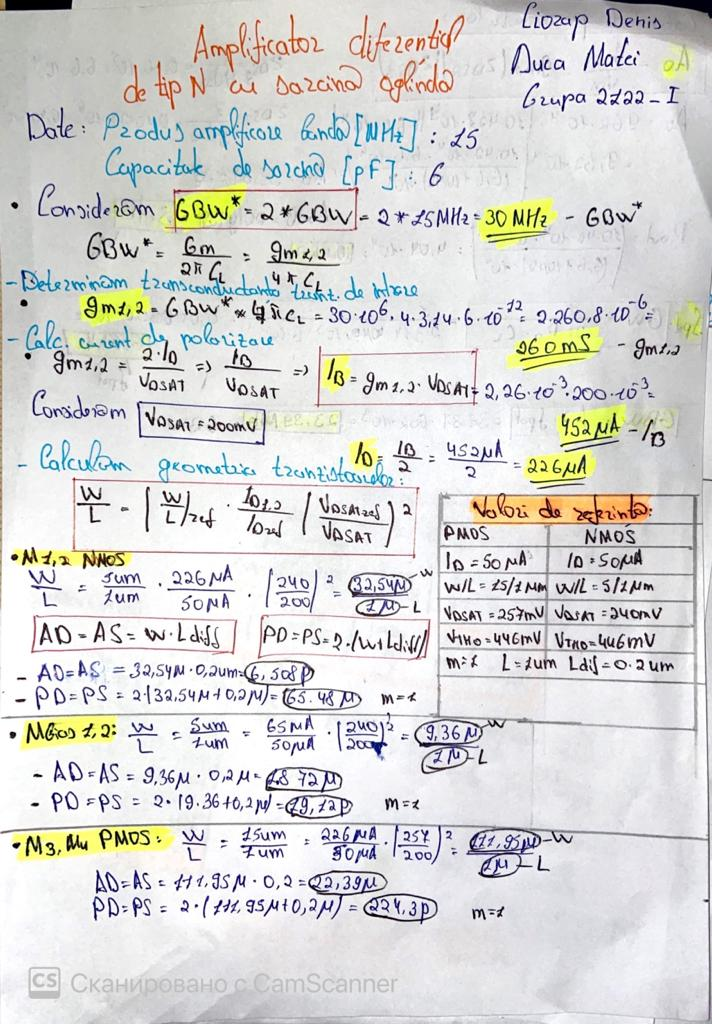 Amplificator diferential
de tip N cu sarcina oglinda
Ciorap Denis
Duca Matei
Grupa 2122-I
Date: Produs amplificare banda [MHz] : 15
Capacitate de sarcina [pF] : 6
• Consideram GBW* = 2*GBW = 2*15MHz = 30 MHz - GBW*
GBW* = Gm / 2π CL = gm1,2 / 4π CL
- Determinam transconductanta tranz. de intrare
• gm1,2 = GBW* * 4πCL = 30·10⁶·4·3,14·6·10⁻¹² = 2.260,8·10⁻⁶ =
260mS - gm1,2
- Calc. curent de polarizare
• gm1,2 = 2·ID / VDSAT => IB / VDSAT => IB = gm1,2 · VDSAT = 2,26·10⁻³·200·10⁻³ =
452µA - IB
Consideram VDSAT = 200mV
ID = IB / 2 = 452µA / 2 = 226µA
- Calculam geometria tranzistoarelor:
W/L = (W/L)ref · ID1,2 / IDref (VDSATref / VDSAT)²
Valori de referinta:
PMOS NMOS
ID = 50µA ID = 50µA
W/L = 15/1µm W/L = 5/1µm
VDSAT = 257mV VDSAT = 240mV
VTHO = 446mV VTHO = 446mV
m=1 L = 1um Ldif = 0.2um
• M1,2 NMOS
W/L = 5um/1um · 226µA/50µA · (240/200)² = 32,54µ - W / 1µ - L
AD = AS = W·Ldiff PD = PS = 2·(W+Ldiff)
- AD=AS = 32,54µ·0,2um = 6,508p
- PD=PS = 2(32,54µ+0,2µ) = 65.48µ m=1
• MBias 1,2: W/L = 5um/1um = 65µA/50µA · (240/200)² = 9,36µ - W / 1µ - L
- AD=AS = 9,36µ·0,2µ = 1.872µ
- PD=PS = 2·(9.36+0,2µ) = 19,12p m=1
• M3, M4 PMOS: W/L = 15um/1um = 226µA/50µA · (257/200)² = 111,95µ - W / 1µ - L
AD=AS = 111,95µ·0,2 = 22,39µ
PD=PS = 2·(111,95µ+0,2µ) = 224,3p m=1
CS Сканировано с CamScanner